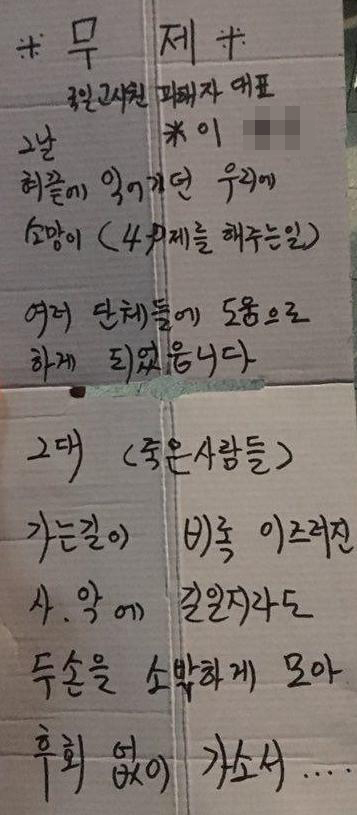 * 무 제 *
국일고시원 피해자 대표
* 이
그날
혀끝에 잊어가던 우리에
소망이 (49제를 해주는일)
여러 단체들에 도움으로
하게 되었읍니다
그대 (죽은사람들)
가는길이 비록 이즈러진
사.악에 길일지라도
두손을 소박하게 모아
후회 없이 가소서 ....